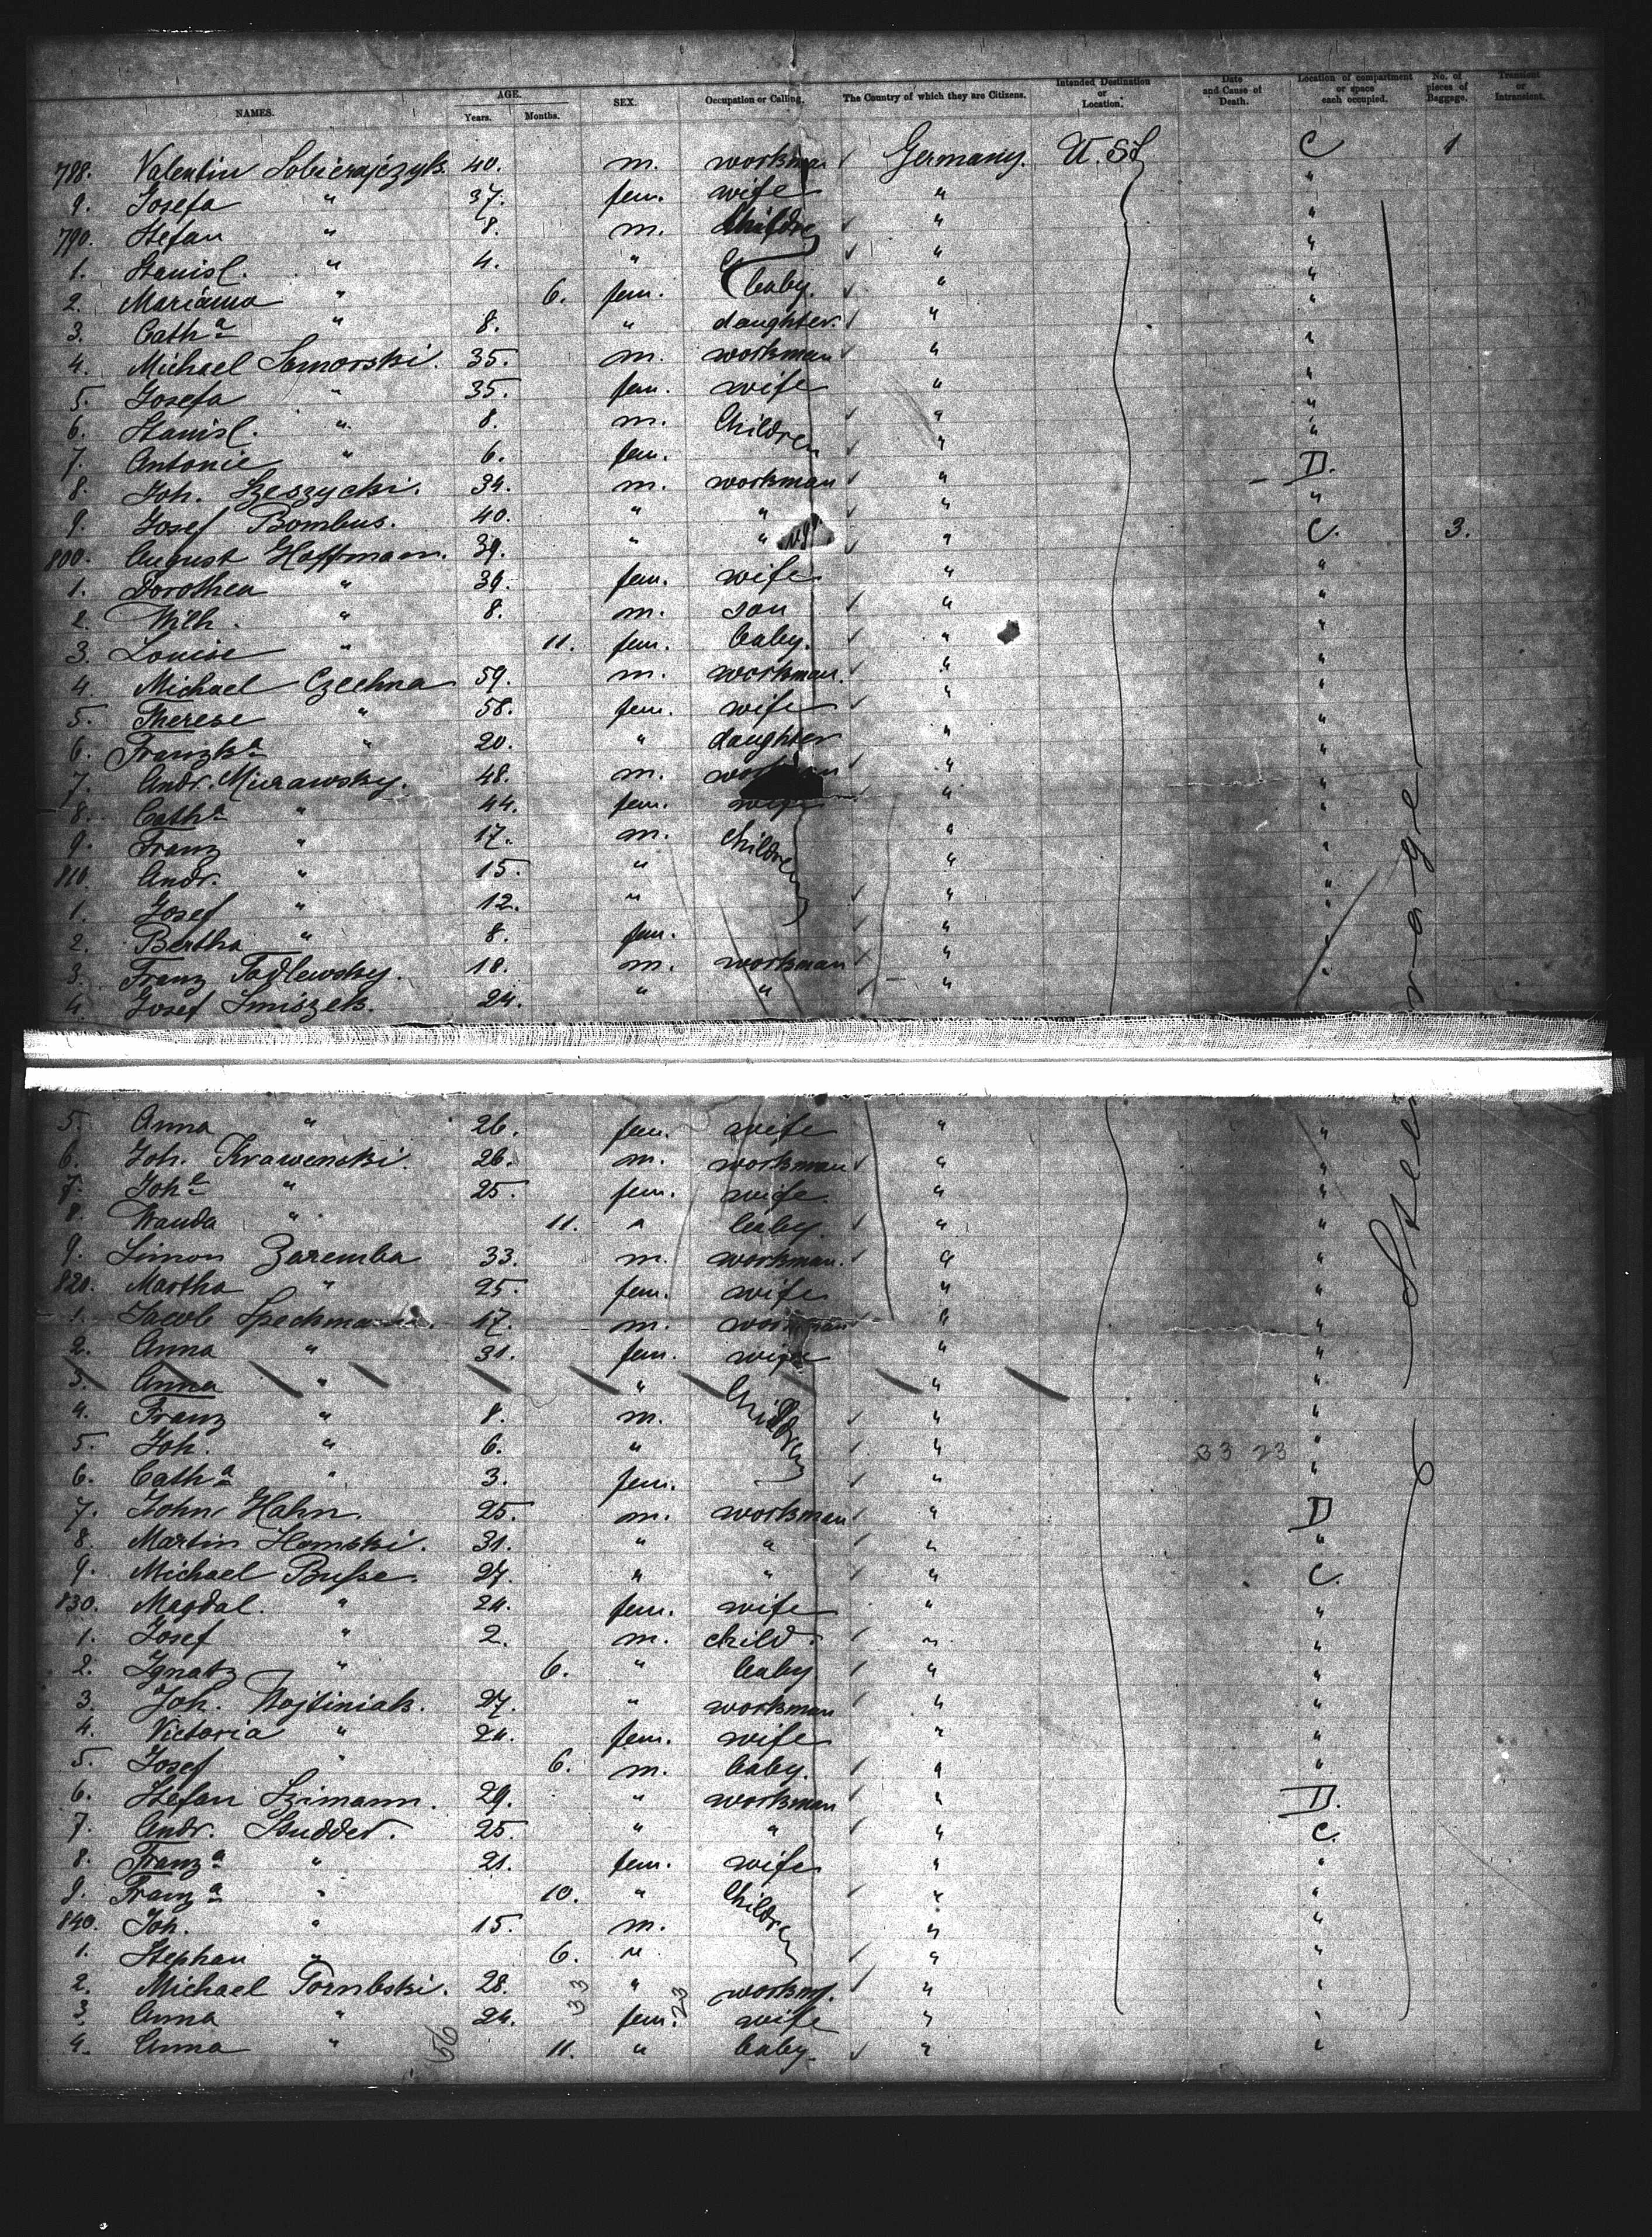 NAMES. AGE. Years. Months. SEX. Occupation or Calling. The Country of which they are Citizens. Intended Destination or Location. Date and Cause of Death. Location of compartment or space each occupied. No. of pieces of Baggage. Transient or Intransient.
788. Valentin Sobierajczyk. 40. m. workman Germany. U. St C 1
9. Josefa " 37. fem. wife " "
790. Stefan " 8. m. Children " "
1. Stanisl. " 4. " " "
2. Marianna " 6. fem. baby. " "
3. Cath a " 8. " daughter. " "
4. Michael Somorski. 35. m. workman " "
5. Josefa " 35. fem. wife " "
6. Stanisl. " 8. m. Children " "
7. Antonie " 6. fem. " "
8. Joh. Szeszycki. 34. m. workman " D.
9. Josef Bombus. 40. " " " "
800. August Hoffmann. 39. " " " C. 3.
1. Dorothea " 34. fem. wife " "
2. Wilh. " 8. m. son " "
3. Louise " 11. fem. baby. " "
4. Michael Czechna 59. m. workman. " "
5. Therese " 58. fem. wife " "
6. Franzka " 20. " daughter " "
7. Andr. Murawsky. 48. m. workman " "
8. Cath a " 44. fem. wife " "
9. Franz " 17. m. Children " "
810. Andr. " 15. " " "
1. Josef " 12. " " "
2. Bertha " 8. fem. " "
3. Franz Todlewsky. 18. m. workman " "
4. Josef Smiszek. 24. " " "
5. Anna " 26. fem. wife " "
6. Joh. Krawenski. 26. m. workman " "
7. Joh e " 25. fem. wife. " "
8. Wanda " 11. " baby. " "
9. Simon Zaremba 33. m. workman. " "
820. Martha " 25. fem. wife " "
1. Jacob Speckmann. 17. m. workman " "
2. Anna " 31. fem. wife " "
3. Anna " " Children " "
4. Franz " 8. m. " "
5. Joh. " 6. " " 33 23 "
6. Cath a " 3. fem. " "
7. John Hahn. 25. m. workman " D
8. Martin Homski. 31. " " " "
9. Michael Busse. 27. " " " C.
830. Magdal. " 24. fem. wife " "
1. Josef " 2. m. child. " "
2. Ignatz " 6. " baby " "
3. Joh. Wojtiniak. 27. " workman " "
4. Victoria " 24. fem. wife " "
5. Josef " 6. m. baby. " "
6. Stefan Szimann. 29. " workman " D.
7. Andr. Studder. 25. " " " C.
8. Franz a " 21. fem. wife " "
9. Franz a " 10. " Children " "
840. Joh. " 15. m. " "
1. Stephan " 6. " " "
2. Michael Tornbski. 28. " workm. " "
3. Anna " 24. fem. wife " "
4. Anna " 11. " baby. " "
Steerage
33 23
56